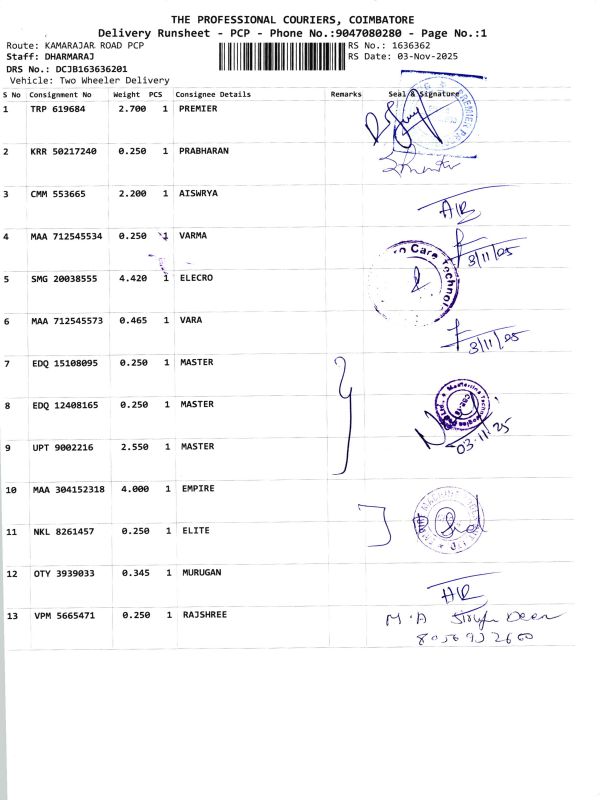 THE PROFESSIONAL COURIERS, COIMBATORE
Delivery Runsheet - PCP - Phone No.:9047080280 - Page No.:1
Route: KAMARAJAR ROAD PCP RS No.: 1636362
Staff: DHARMARAJ RS Date: 03-Nov-2025
DRS No.: DCJB163636201
Vehicle: Two Wheeler Delivery
S No Consignment No Weight PCS Consignee Details Remarks Seal & Signature
1 TRP 619684 2.700 1 PREMIER
2 KRR 50217240 0.250 1 PRABHARAN
3 CMM 553665 2.200 1 AISWRYA
4 MAA 712545534 0.250 1 VARMA
3/11/25
5 SMG 20038555 4.420 1 ELECRO
Care Technol
6 MAA 712545573 0.465 1 VARA
3/11/25
7 EDQ 15108095 0.250 1 MASTER
8 EDQ 12408165 0.250 1 MASTER
9 UPT 9002216 2.550 1 MASTER
03.11.25
10 MAA 304152318 4.000 1 EMPIRE
11 NKL 8261457 0.250 1 ELITE
12 OTY 3939033 0.345 1 MURUGAN
13 VPM 5665471 0.250 1 RAJSHREE M.A